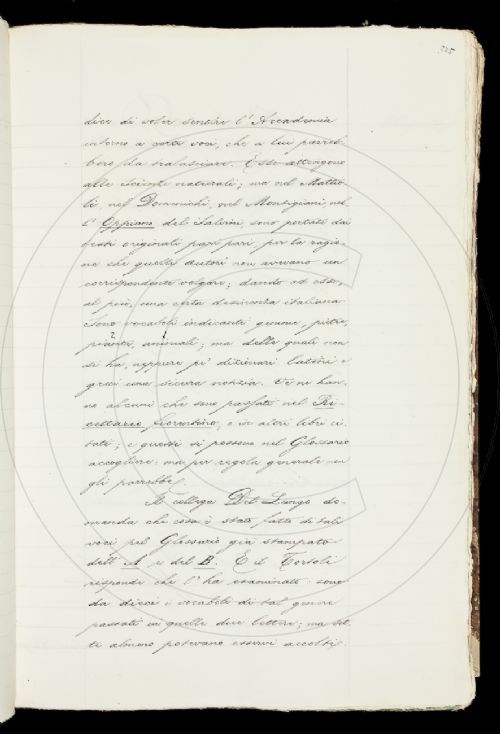 325
dice di voler sentire l'Accademia
intorno a certe voci, che a lui parreb-
bero da tralasciare. Esse attengono
alle scienze naturali; ma nel Mattio-
li, nel Domenichi, nel Montigiani, nel-
l'Oppiano del Salvini, sono portate dai
testi originali pari pari, per la ragio-
ne che quelli autori non avevano un
corrispondente volgare; dando ad esse,
al più, una certa desinenza italiana.
Sono vocaboli indicanti gemme, pietre,
piante, animali; ma delle quali non
si ha, neppure pe' dizionari latini e
greci una sicura notizia. Ve ne han-
no alcuni che sono passati nel Ri-
cettario fiorentino, e in altri libri ci-
tati; e questi si possono nel Glossario
accogliere: ma per regola generale non
gli parrebbe.
Il collega Del Lungo do-
manda che cosa è stato fatto di tali
voci pel Glossario già stampato
dell'A e del B. E il Tortoli
risponde che l'ha esaminato: sono
da dieci i vocaboli di tal genere
passati in quelle due lettere; ma set-
te almeno potevano esservi accolti.